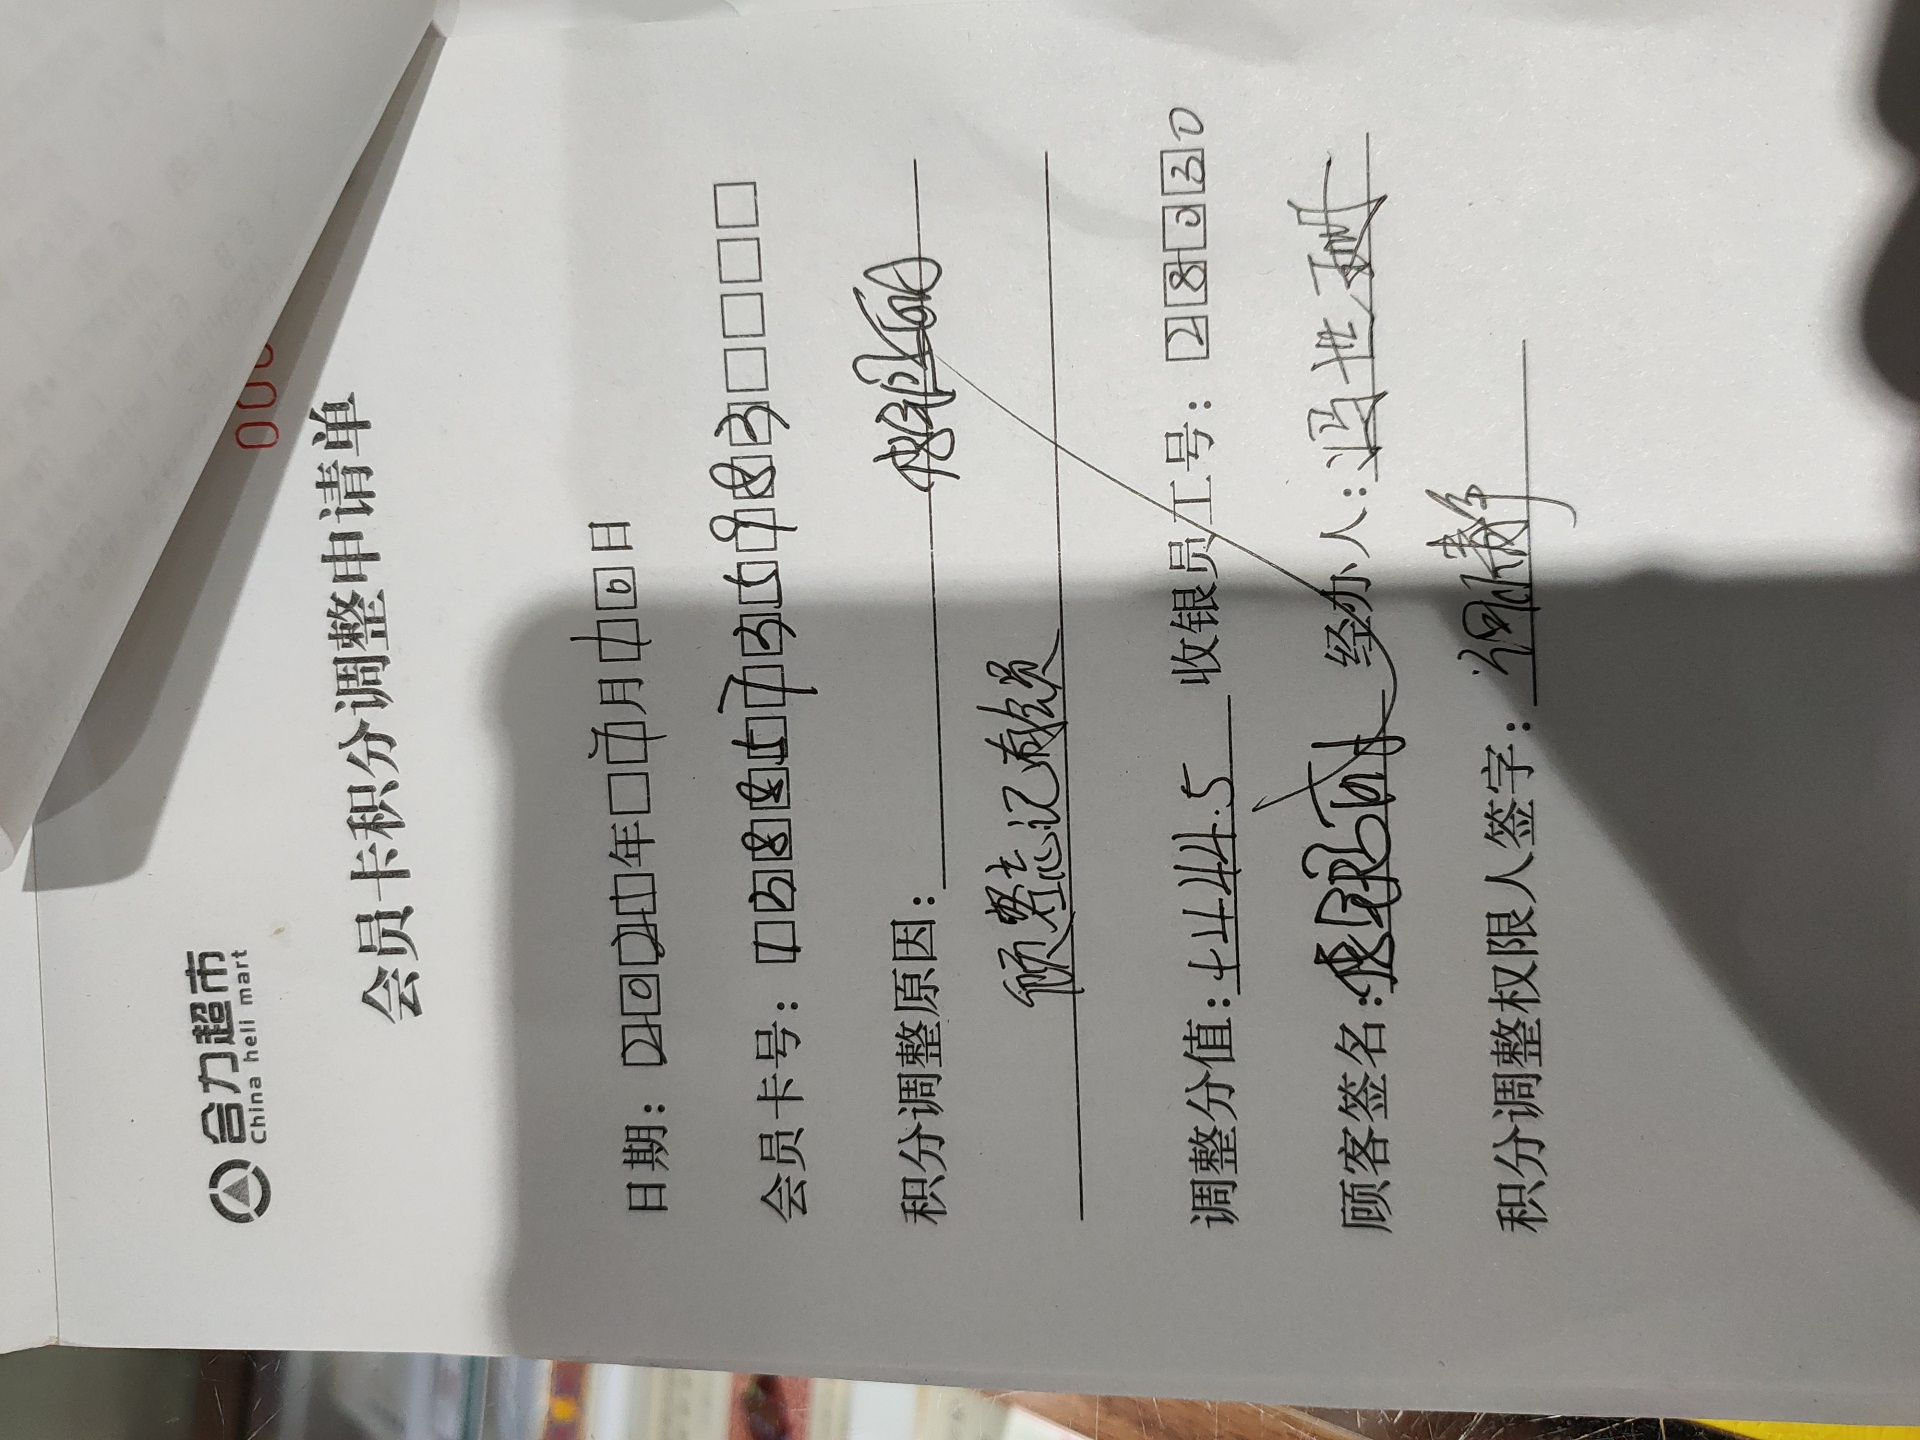 合力超市
China heli mart
000
会员卡积分调整申请单
日期：2022年 5月10日
会员卡号：13885735983
积分调整原因：
顾客忘记积分
调整分值：+444.5 收银员工号：28030
顾客签名： 经办人：冯世
积分调整权限人签字：